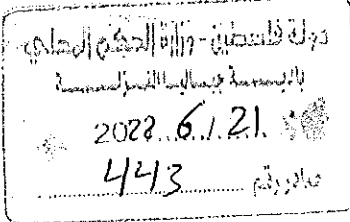 دولة فلسطين - وزارة الحكم المحلي
2022.6.21.
443
صادر رقم